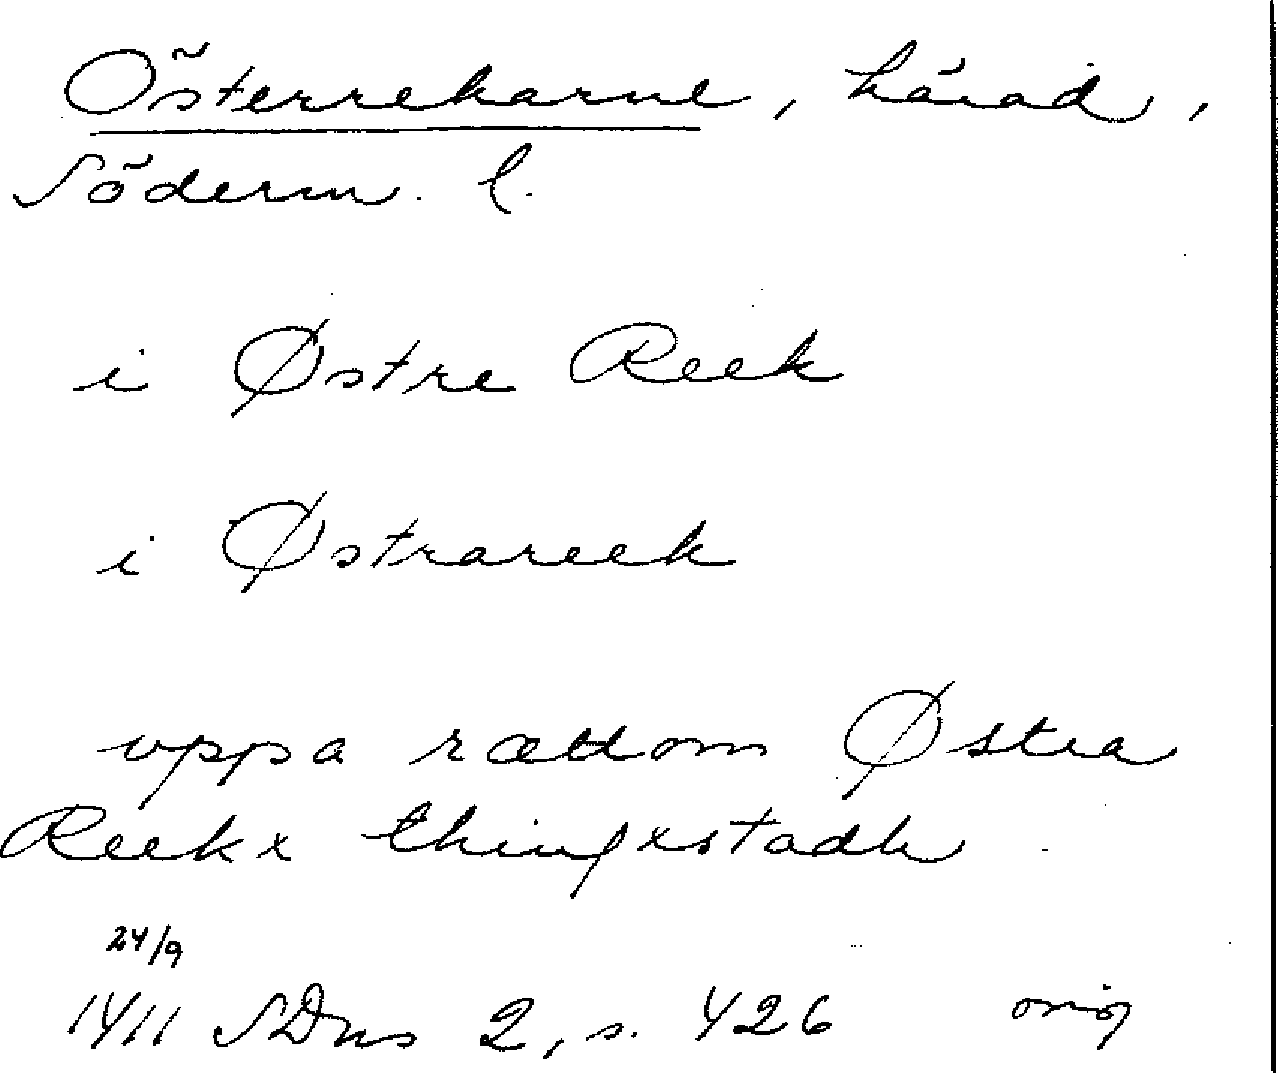 Österrekarne, härad,
Söderm. l.
i Østre Reek
i Østrareek
uppa rættom Østra
Reekx thingxstadh.
24/9
1411 SDns 2, s. 426 orig